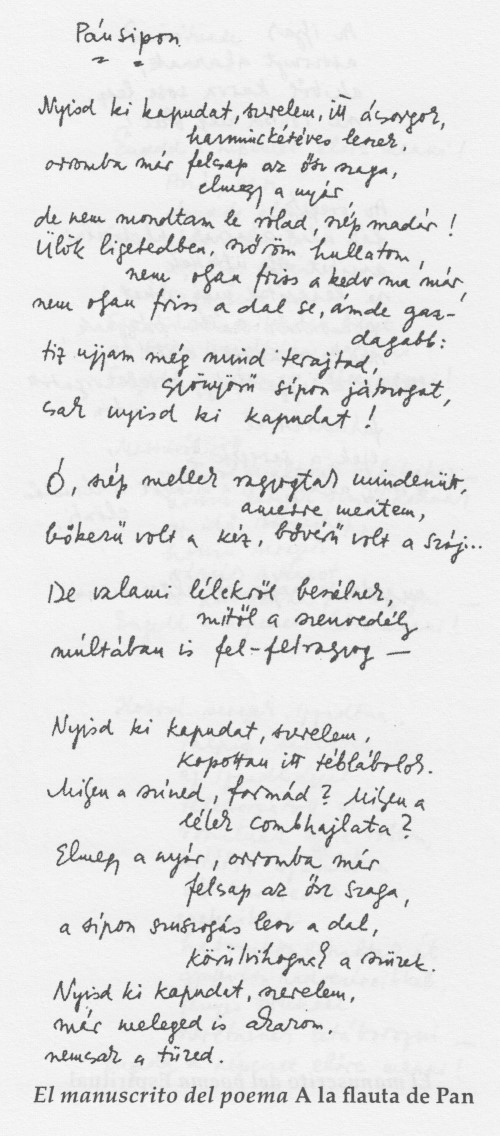 Pánsipon
Nyisd ki kapudat, szerelem, itt ácsorgok,
harminckétéves leszek,
orromba már felcsap az ősz szaga,
elmegy a nyár,
de nem mondtam le rólad, szép madár!
Ülök ligetedben, szőröm hullatom,
nem olyan friss a kedv ma már,
nem olyan friss a dal se, ámde gaz-
dagabb:
tíz ujjam még mind terajtad,
gyönyörű sípon játszogat,
csak nyisd ki kapudat!
Ó, szép mellek ragyogtak mindenütt,
amerre mentem,
bőkezű volt a kéz, bővérű volt a száj..
De valami lélekről beszélnek,
mitől a szenvedély
múltában is fel-felragyog —
Nyisd ki kapudat, szerelem,
kopottan itt téblábolok.
Milyen a színed, formád? Milyen a
lélek combhajlata?
Elmegy a nyár, orromba már
felcsap az ősz szaga,
a sípon szuszogás lesz a dal,
körülvihognak a szüzek.
Nyisd ki kapudat, szerelem,
már meleged is akarom,
nemcsak a tüzed.
El manuscrito del poema A la flauta de Pan